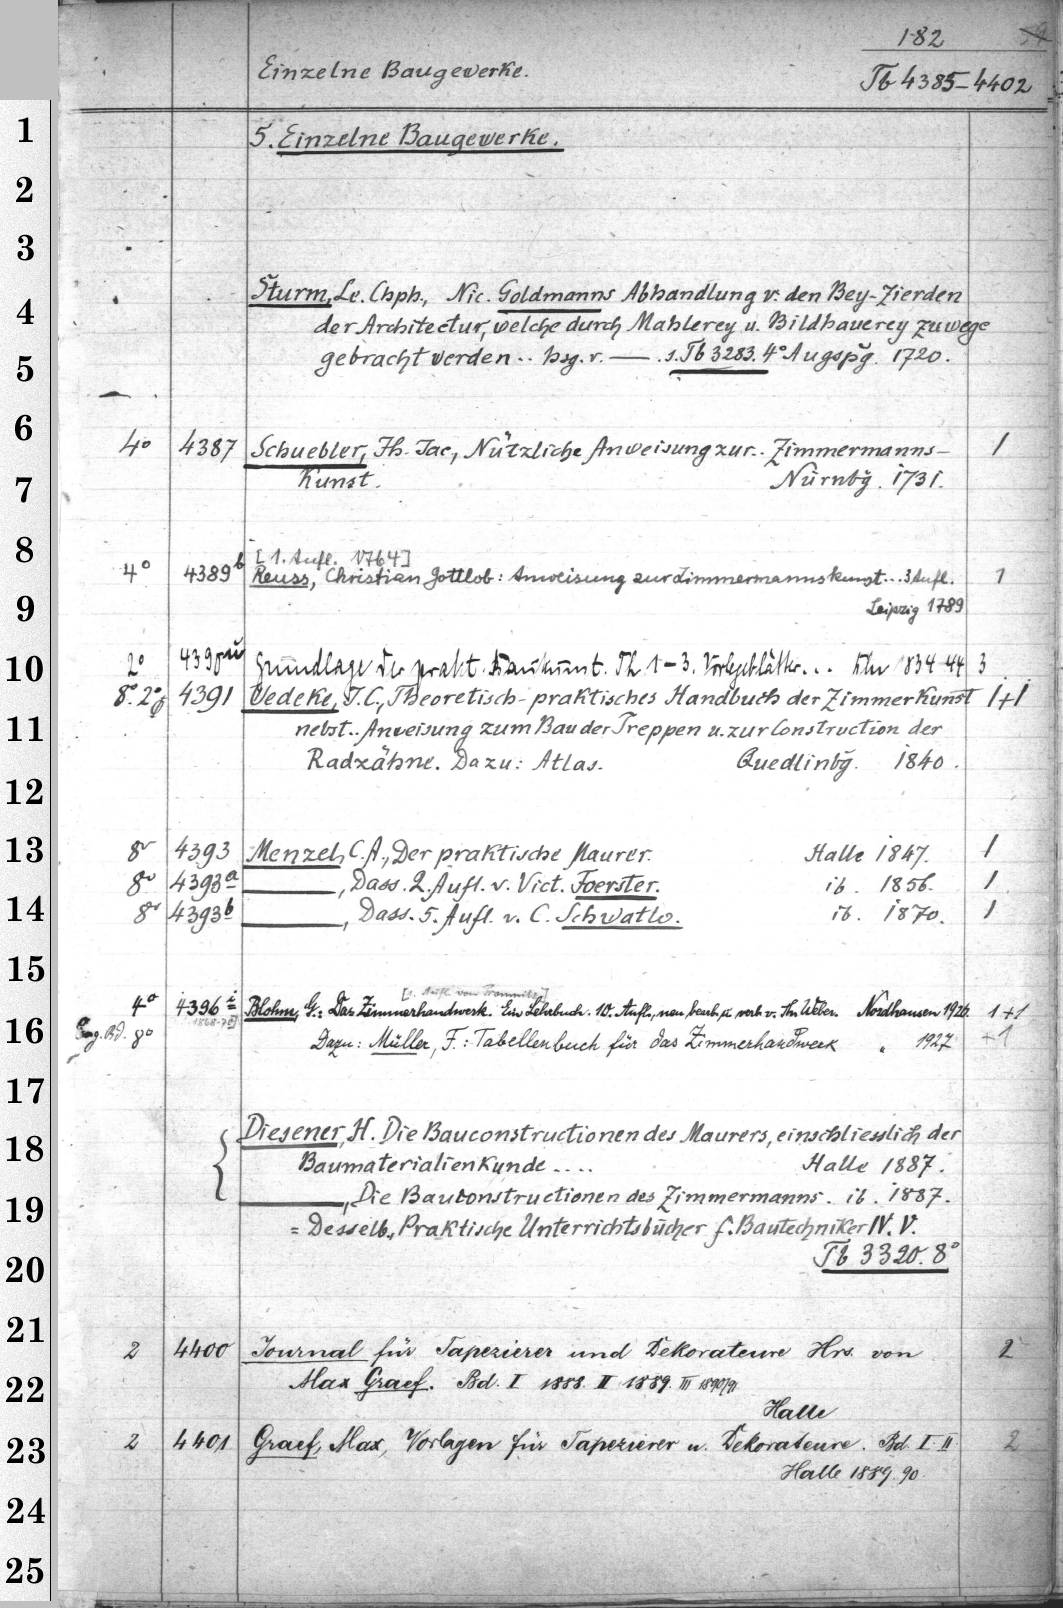 182
Einzelne Baugewerke.
Tb 4385-4402
1
5. Einzelne Baugewerke.
2
3
4
Sturm, Le. Chph., Nic. Goldmanns Abhandlung v. den Bey-Zierden
der Architectur, welche durch Mahlerey u. Bildhauerey zuwege
5
gebracht werden .. hsg. v. — . s. Tb 3283. 4° Augspg. 1720.
6
4° 4387 Schuebler, Jh. Jac., Nützliche Anweisung zur .. Zimmermanns- 1
7
Kunst. Nürnbg. 1731.
8
[1. Aufl. 1764]
4° 4389b Reuss, Christian Gottlob: Anweisung zur Zimmermannskunst ... 3 Aufl. 1
9
Leipzig 1789
10
2° Grundlage der prakt. Baukunst. Th 1-3. Vorlegeblätter... 1834-44 3
8°. 2° 4391 Uedeke, J. C., Theoretisch-praktisches Handbuch der Zimmerkunst 1+1
11
nebst .. Anweisung zum Bau der Treppen u. zur Construction der
Radzähne. Dazu: Atlas. Quedlinbg. 1840.
12
13
8° 4393 Menzel, C. A., Der praktische Maurer. Halle 1847. 1
8° 4393a ——, Dass. 2. Aufl. v. Vict. Foerster. ib. 1856. 1
14
8° 4393b ——, Dass. 5. Aufl. v. C. Schwatlo. ib. 1870. 1
15
4° 4396i Blohm, G.: Das Zimmerhandwerk. Ein Lehrbuch. 10. Aufl., neu bearb. v. Th. Weber. Nordhausen 1926. 1+1
16
8° Dazu: Müller, F.: Tabellenbuch für das Zimmerhandwerk " 1927 +1
17
18
Diesener, H. Die Bauconstructionen des Maurers, einschliesslich der
Baumaterialienkunde .... Halle 1887.
19
——, Die Bauconstructionen des Zimmermanns. ib. 1887.
= Desselb. Praktische Unterrichtsbücher f. Bautechniker IV. V.
20
Tb 3320. 8°
21
2 4400 Journal für Tapezierer und Dekorateure Hrs. von 2
22
Max Graef. Bd. I 1888. II 1889. III 1890/91
Halle
23
2 4401 Graef, Max, Vorlagen für Tapezierer u. Dekorateure. Bd. I-II 2
Halle 1889. 90.
24
25